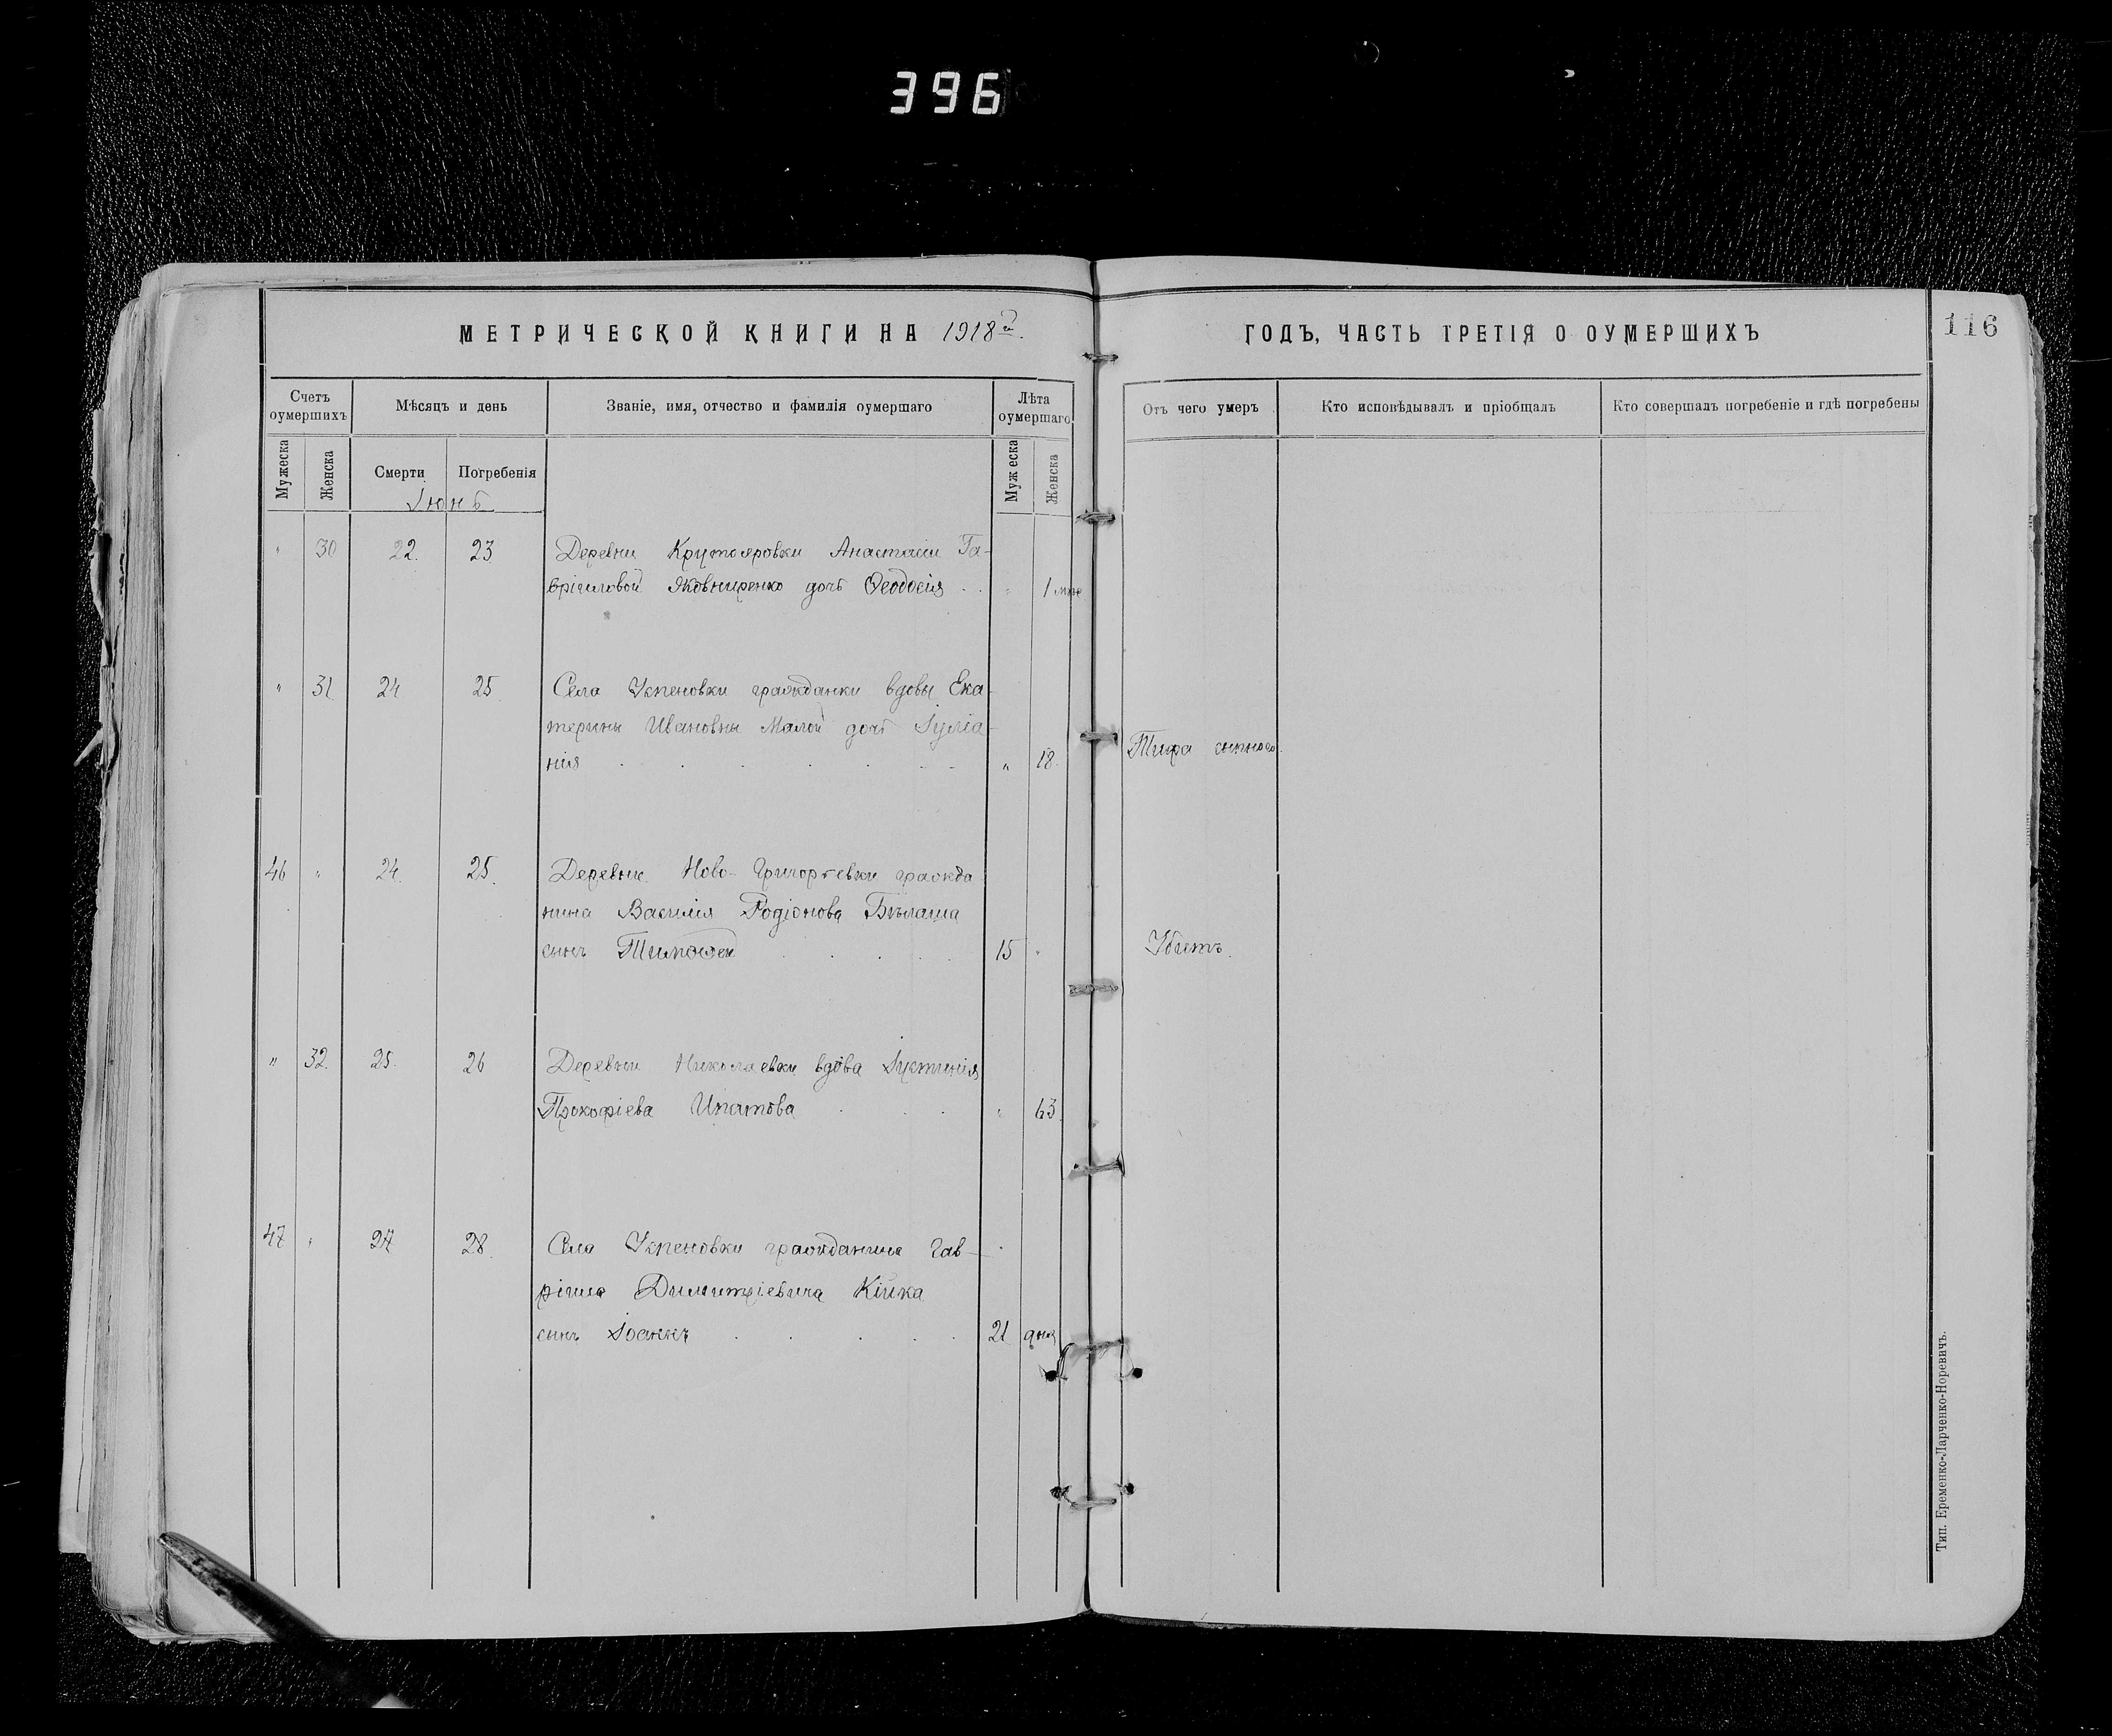 396
МЕТРИЧЕСКОЙ КНИГИ НА 1918й.
ГОДЪ, ЧАСТЬ ТРЕТІЯ О ОУМЕРШИХЪ
116
Счетъ оумершихъ
Мѣсяцъ и день
Званіе, имя, отчество и фамилія оумершаго
Лѣта оумершаго
Отъ чего умеръ
Кто исповѣдывалъ и пріобщалъ
Кто совершалъ погребеніе и гдѣ погребены
Мужеска
Женска
Смерти
Погребенія
Мужеска
Женска
Іюнь
" 30 22. 23 Деревни Крутояровки Анастасіи Га-
вріиловой Яковниренко дочь Ѳеодосія . . " 1
" 31 24 25 Села Успеновки гражданки вдовы Ека-
терины Ивановны Малой дочь Іуліа-
нія . . . . . . . " 18. Тифа сыпного.
46 " 24. 25. Деревни Ново-Григорьевки гражда
нина Василія Родіонова Бѣлаша
сынъ Тимоѳей . . . . . 15 " Убитъ.
" 32. 25. 26 Деревни Николаевки вдова Іустинія
Прокофіева Ипатова . . . " 63.
47 " 27 28. Села Успеновки гражданина Гав-
ріила Димитріевича Кійка
сынъ Іоаннъ . . . . . 21 дня
Тип. Еременко-Ларченко-Норевичъ.